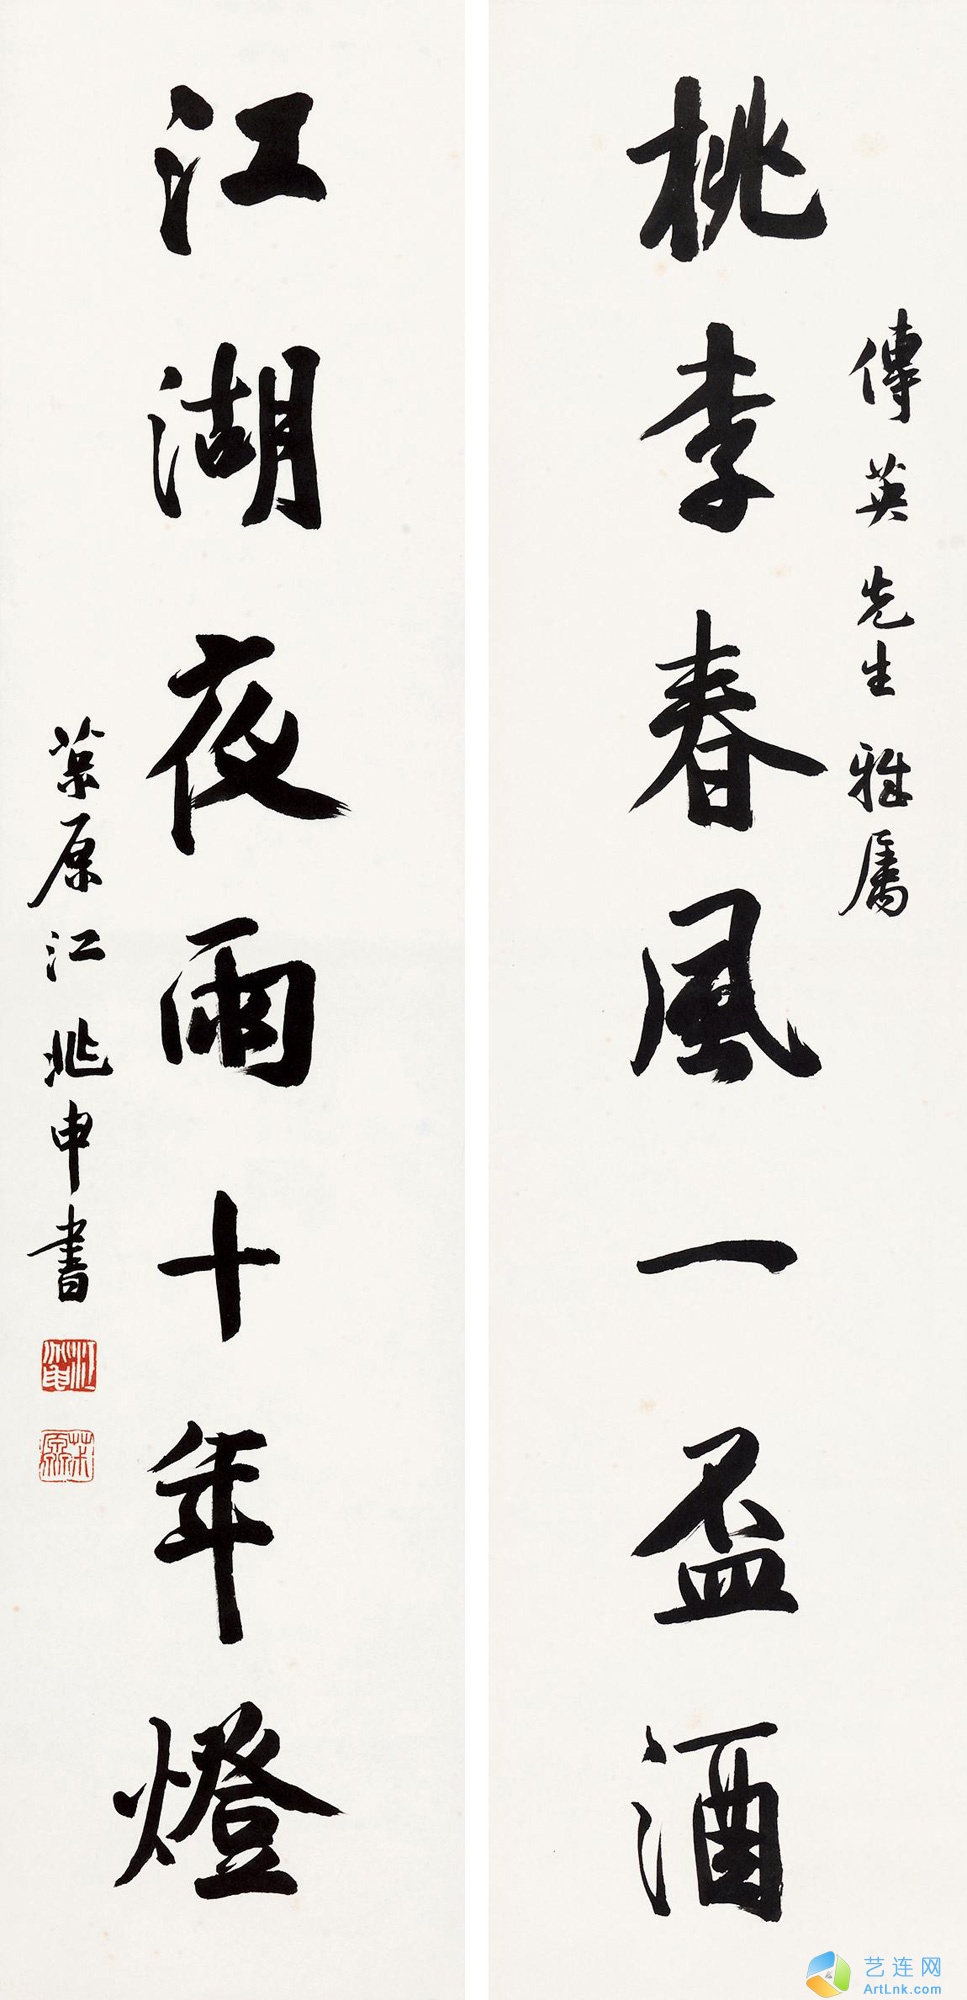 傳英先生雅屬
桃李春風一盃酒
江湖夜雨十年燈
茮原江兆申書
江兆申
茮原
艺连网
ArtLnk.com